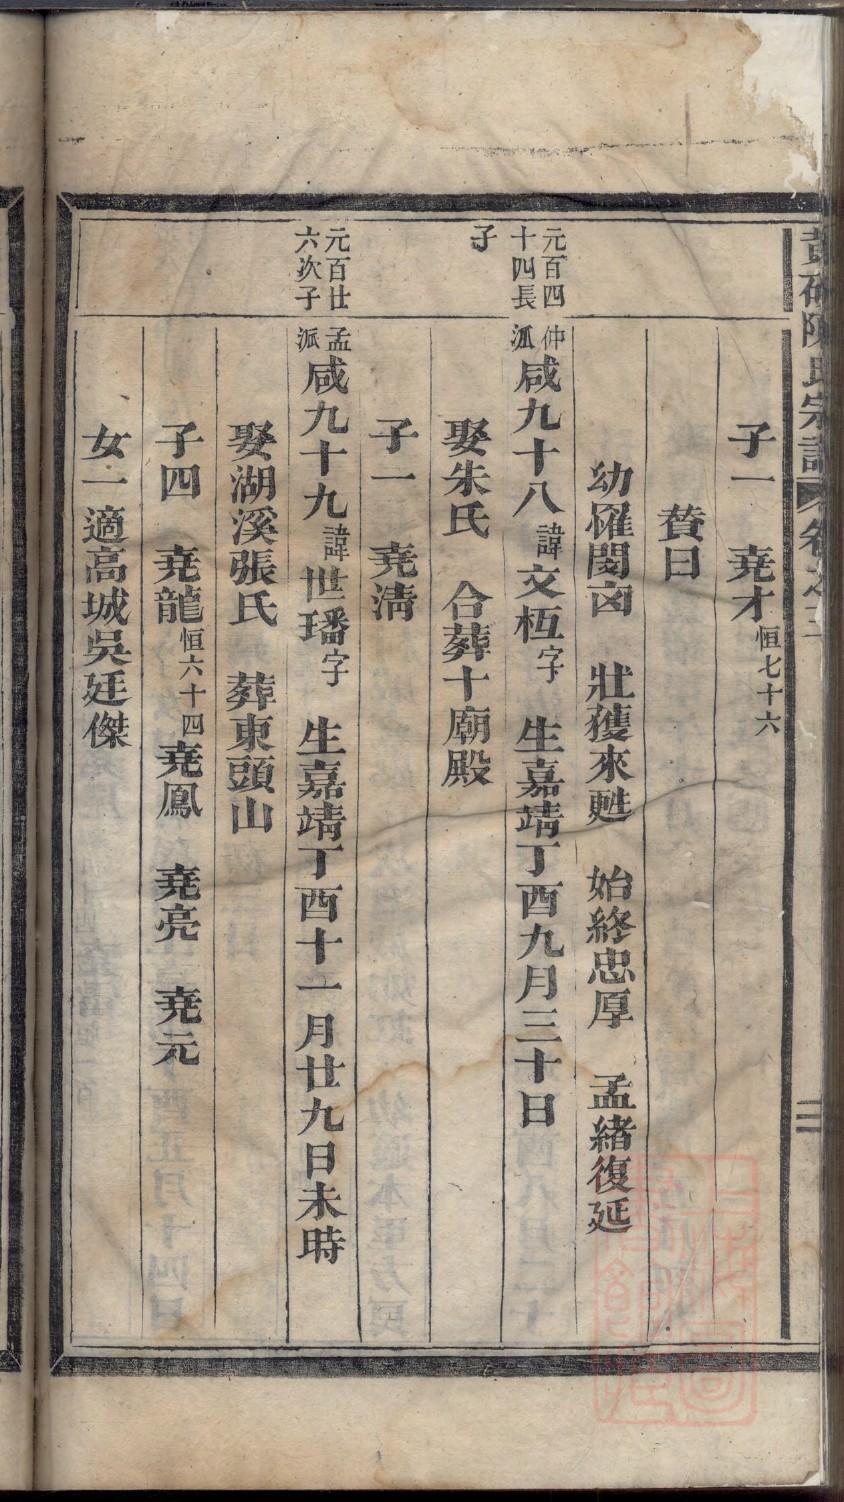 陳氏宗譜 卷之三
子一 堯才恒七十六
贊曰
幼罹閔凶 壯獲來甦 始終忠厚 孟緒復延
元百四十四長子
仲派咸九十八諱文桓字 生嘉靖丁酉九月三十日
娶朱氏 合葬十廟殿
子一 堯淸
元百廿六次子
孟派咸九十九諱世璠字 生嘉靖丁酉十一月廿九日未時
娶湖溪張氏 葬東頭山
子四 堯龍恒六十四堯鳳 堯亮 堯元
女一適高城吳廷傑